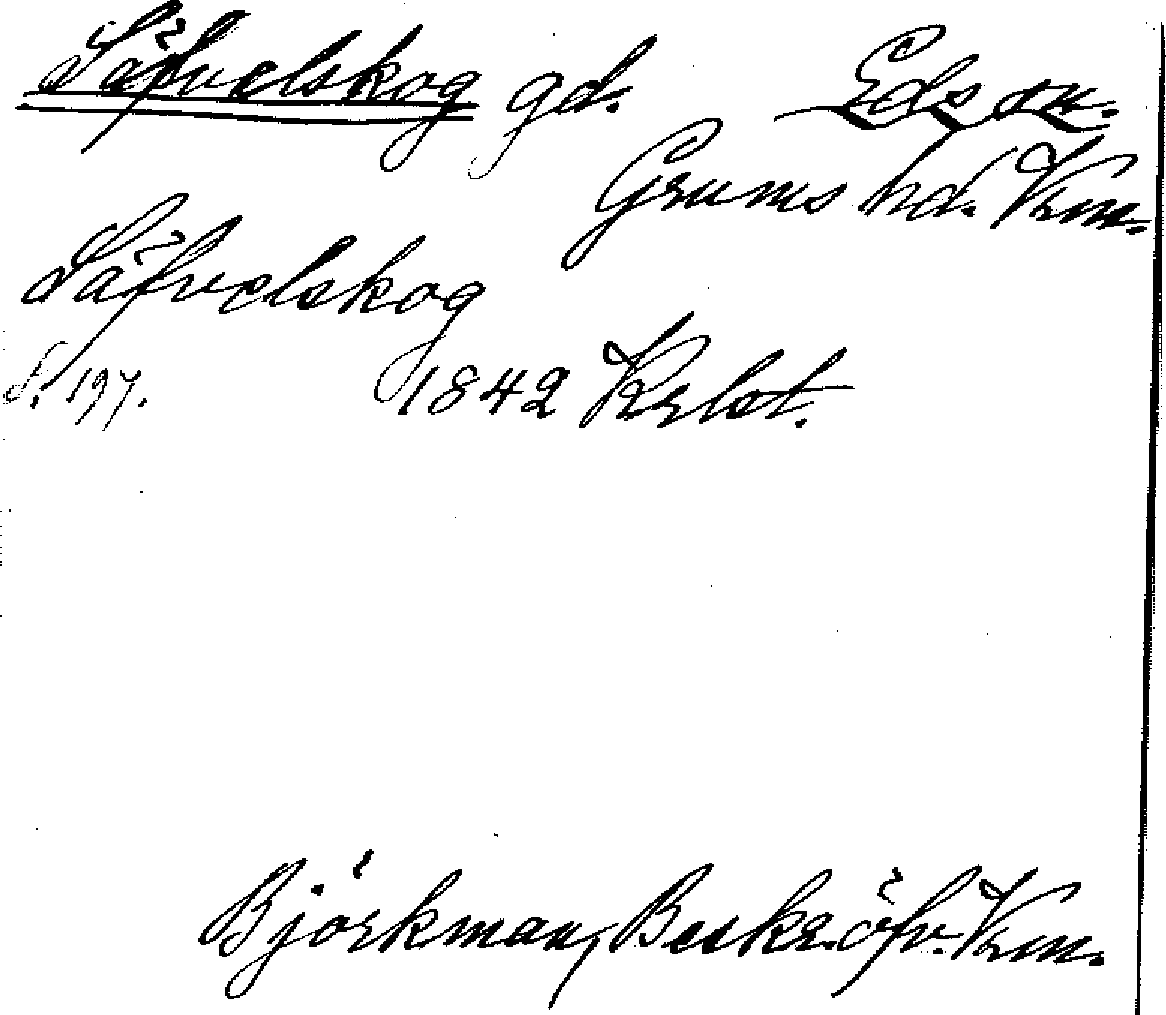 Säfvelskog gd. Eds sn.
Grums hd. Vrm.
Säfvelskog
s. 197. 1842 Krlst.
Björkman, Beskr. öfv. Vrm.